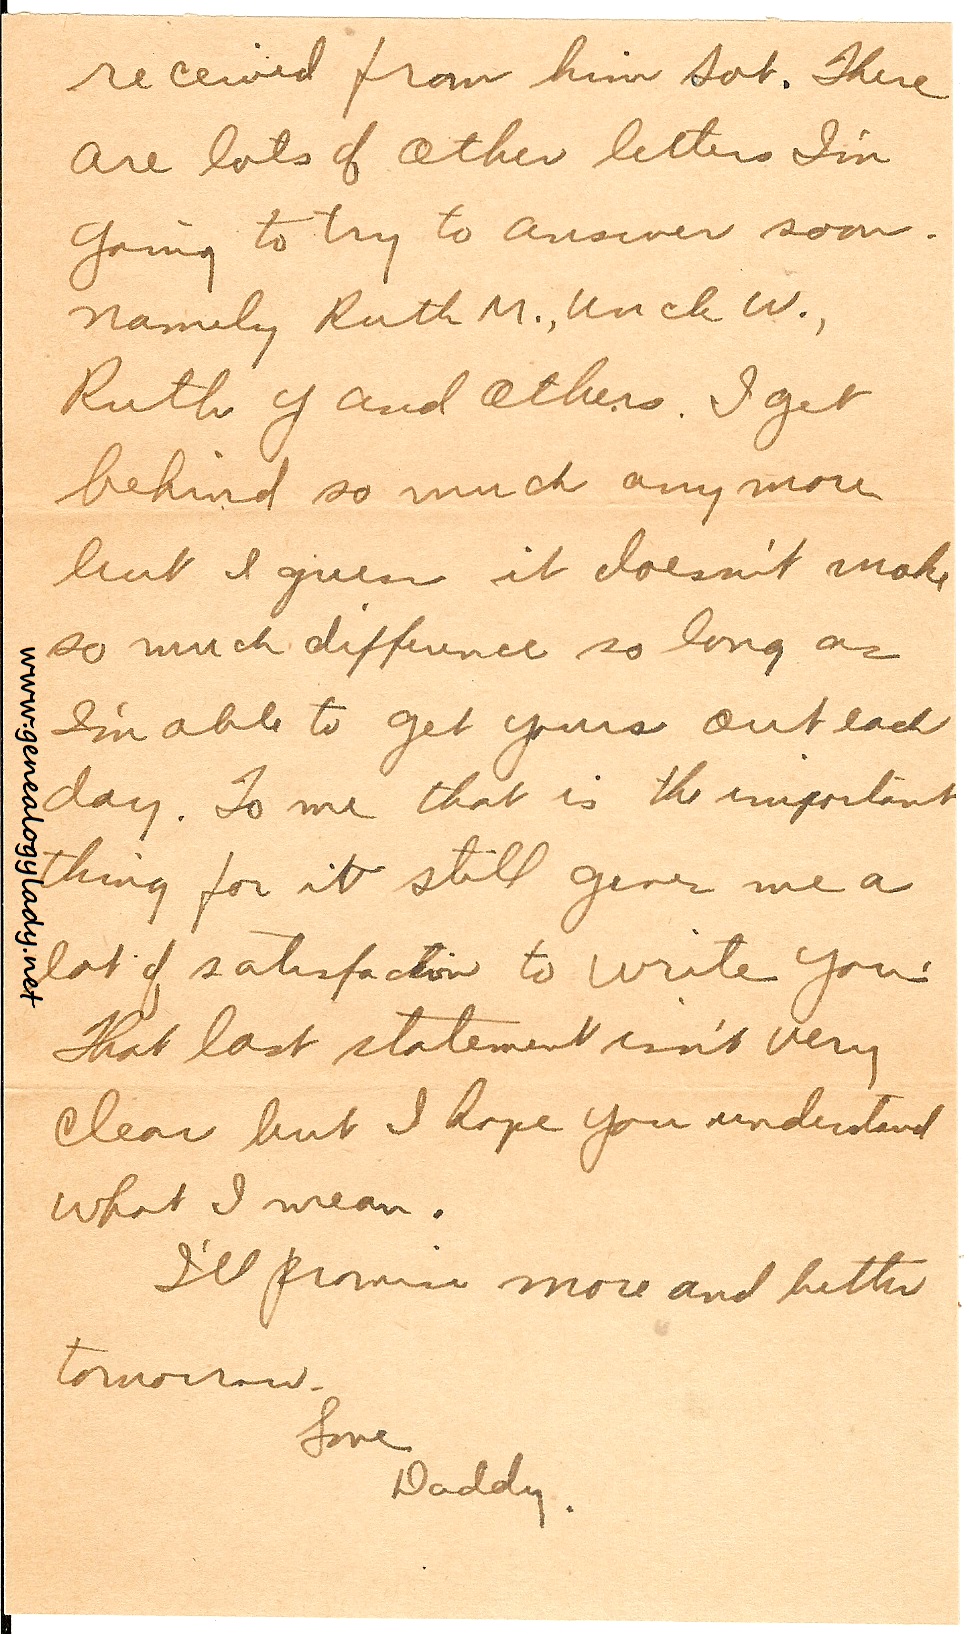 received from him Sat. There
are lots of other letters I'm
going to try to answer soon.
namely Ruth M., Uncle W.,
Ruth Y and others. I get
behind so much anymore
but I guess it doesn't make
so much difference so long as
I'm able to get yours out each
day. To me that is the important
thing for it still gives me a
lot of satisfaction to write you.
That last statement isn't very
clear but I hope you understand
what I mean.
I'll promise more and better
tomorrow.
Love
Daddy.
www.genealogylady.net